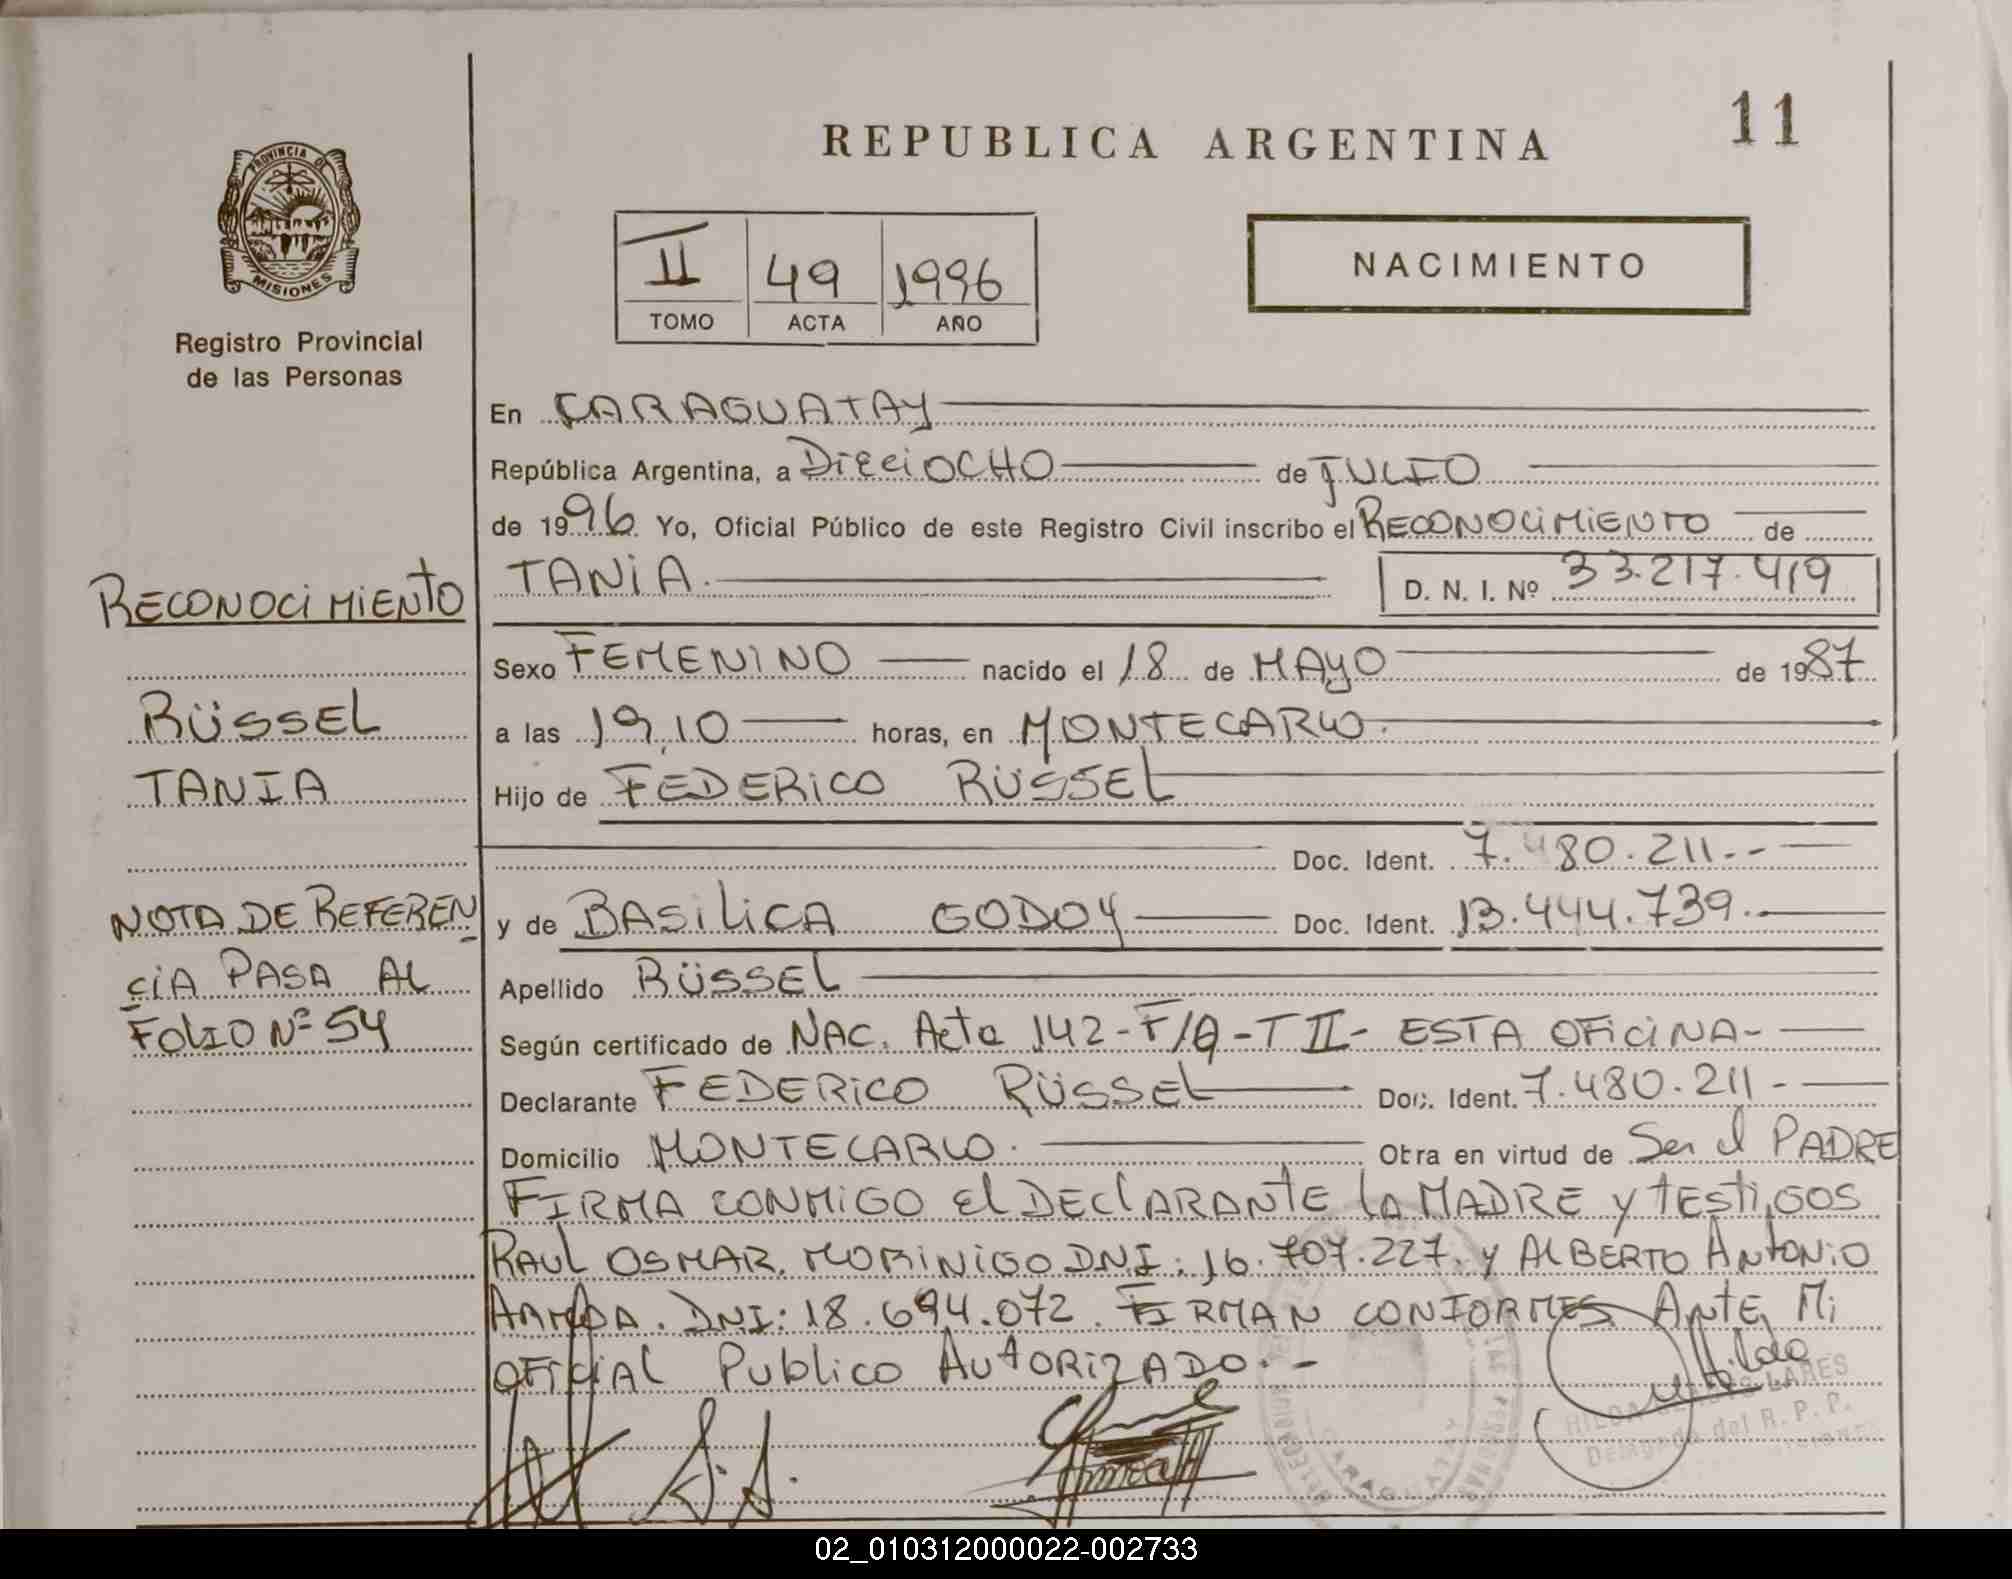 11
REPUBLICA ARGENTINA
PROVINCIA DE
MISIONES
Registro Provincial
de las Personas
II 49 1996
TOMO ACTA AÑO
NACIMIENTO
En CARAGUATAY
República Argentina, a DieciOCHO de JULIO
de 1996 Yo, Oficial Público de este Registro Civil inscribo el RECONOCIMIENTO de
TANIA. D. N. I. Nº 33.217.419
Sexo FEMENINO nacido el 18 de MAYO de 1987
a las 19,10 horas, en MONTECARLO.
Hijo de FEDERICO RÜSSEL
Doc. Ident. 7.480.211.-
y de BASILICA GODOY Doc. Ident. 13.444.739.-
Apellido RÜSSEL
Según certificado de NAC. Acta 142-F/Q-T II- ESTA OFICINA-
Declarante FEDERICO RÜSSEL Doc. Ident. 7.480.211-
Domicilio MONTECARLO. Obra en virtud de Ser el PADRE
FIRMA CONMIGO El DEClARANTE lA MADRE y tESTiGOS
RAUL OSMAR MORINIGO DNI: 16.707.227. y ALBERTO ANTONIO
DNI: 18.694.072. FIRMAN CONFORMES ANTE Mi
OFICIAL PUblico AUTORIZADO.-
RECONOCIMIENTO
RÜSSEL
TANIA
NOTA DE REFEREN
CIA PASA AL
FOLIO Nº 54
HILDA LARES
Delegada del R. P. P.
CARAGUATAY
02_010312000022-002733